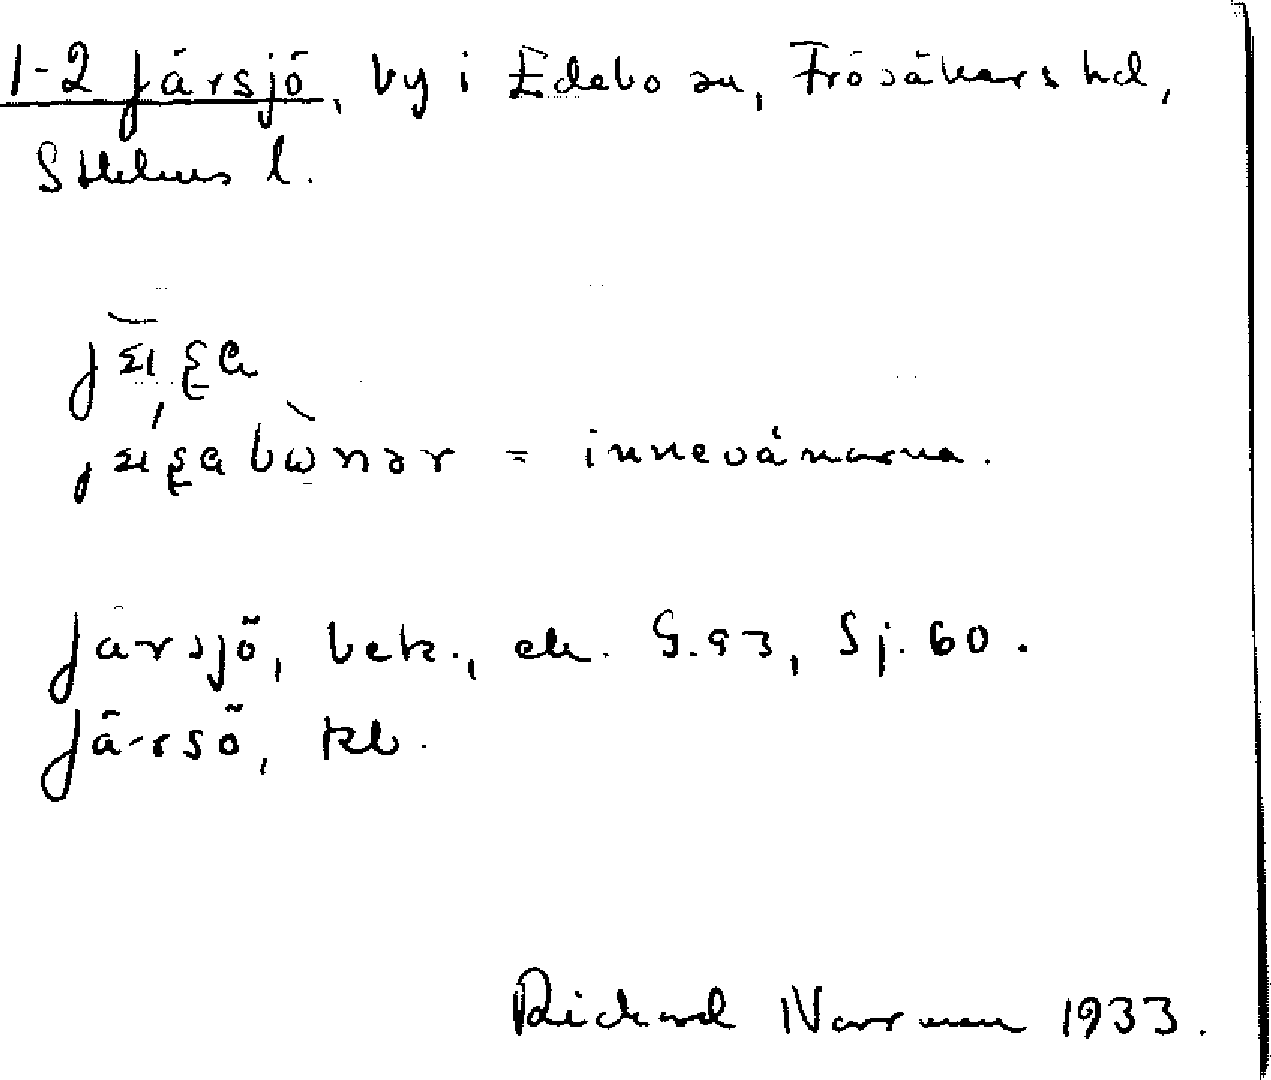 1-2 Järsjö, by i Edebo sn, Frösåkers hd,
Sthlms l.
= innevånarna.
Järsjö, bek., ek. G. 93, Sj. 60.
Järsö, kb.
Richard Norrman 1933.